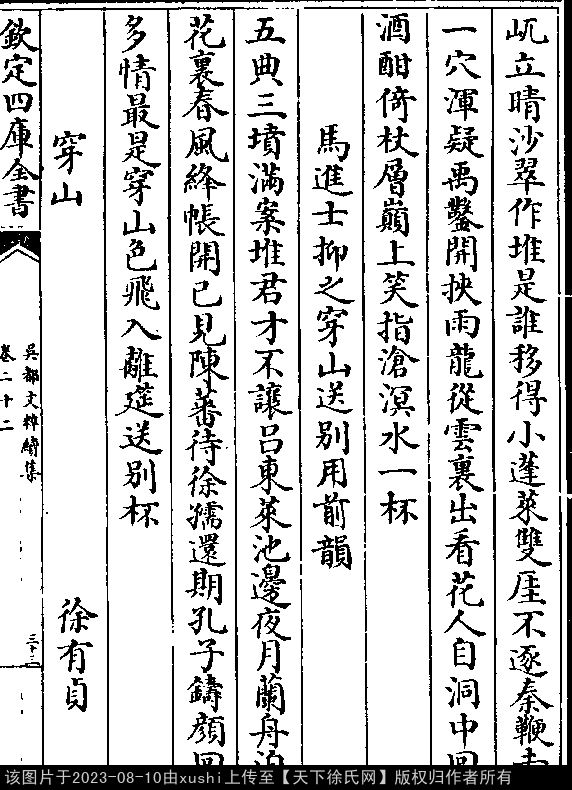 屼立晴沙翠作堆是誰移得小蓬萊雙厓不逐秦鞭去
一穴渾疑禹鑿開挾雨龍從雲裏出看花人自洞中回
酒酣倚杖層巔上笑指滄溟水一杯
馬進士抑之穿山送别用前韻
五典三墳滿案堆君才不讓吕東萊池邊夜月蘭舟泊
花裏春風絳帳開已見陳蕃待徐孺還期孔子鑄顔回
多情最是穿山色飛入離筵送别杯
穿山 徐有貞
欽定四庫全書
吳都文粹續集
卷二十二
三十二
该图片于2023-08-10由xushi上传至【天下徐氏网】版权归作者所有